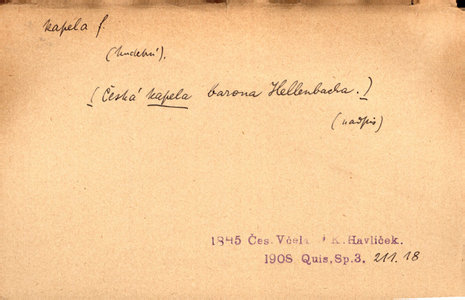 kapela f.
(hudební).
(Česká kapela barona Hellenbacha.)
(nadpis)
1845 Čes. Včela K. Havlíček.
1908 Quis, Sp. 3, 211.18